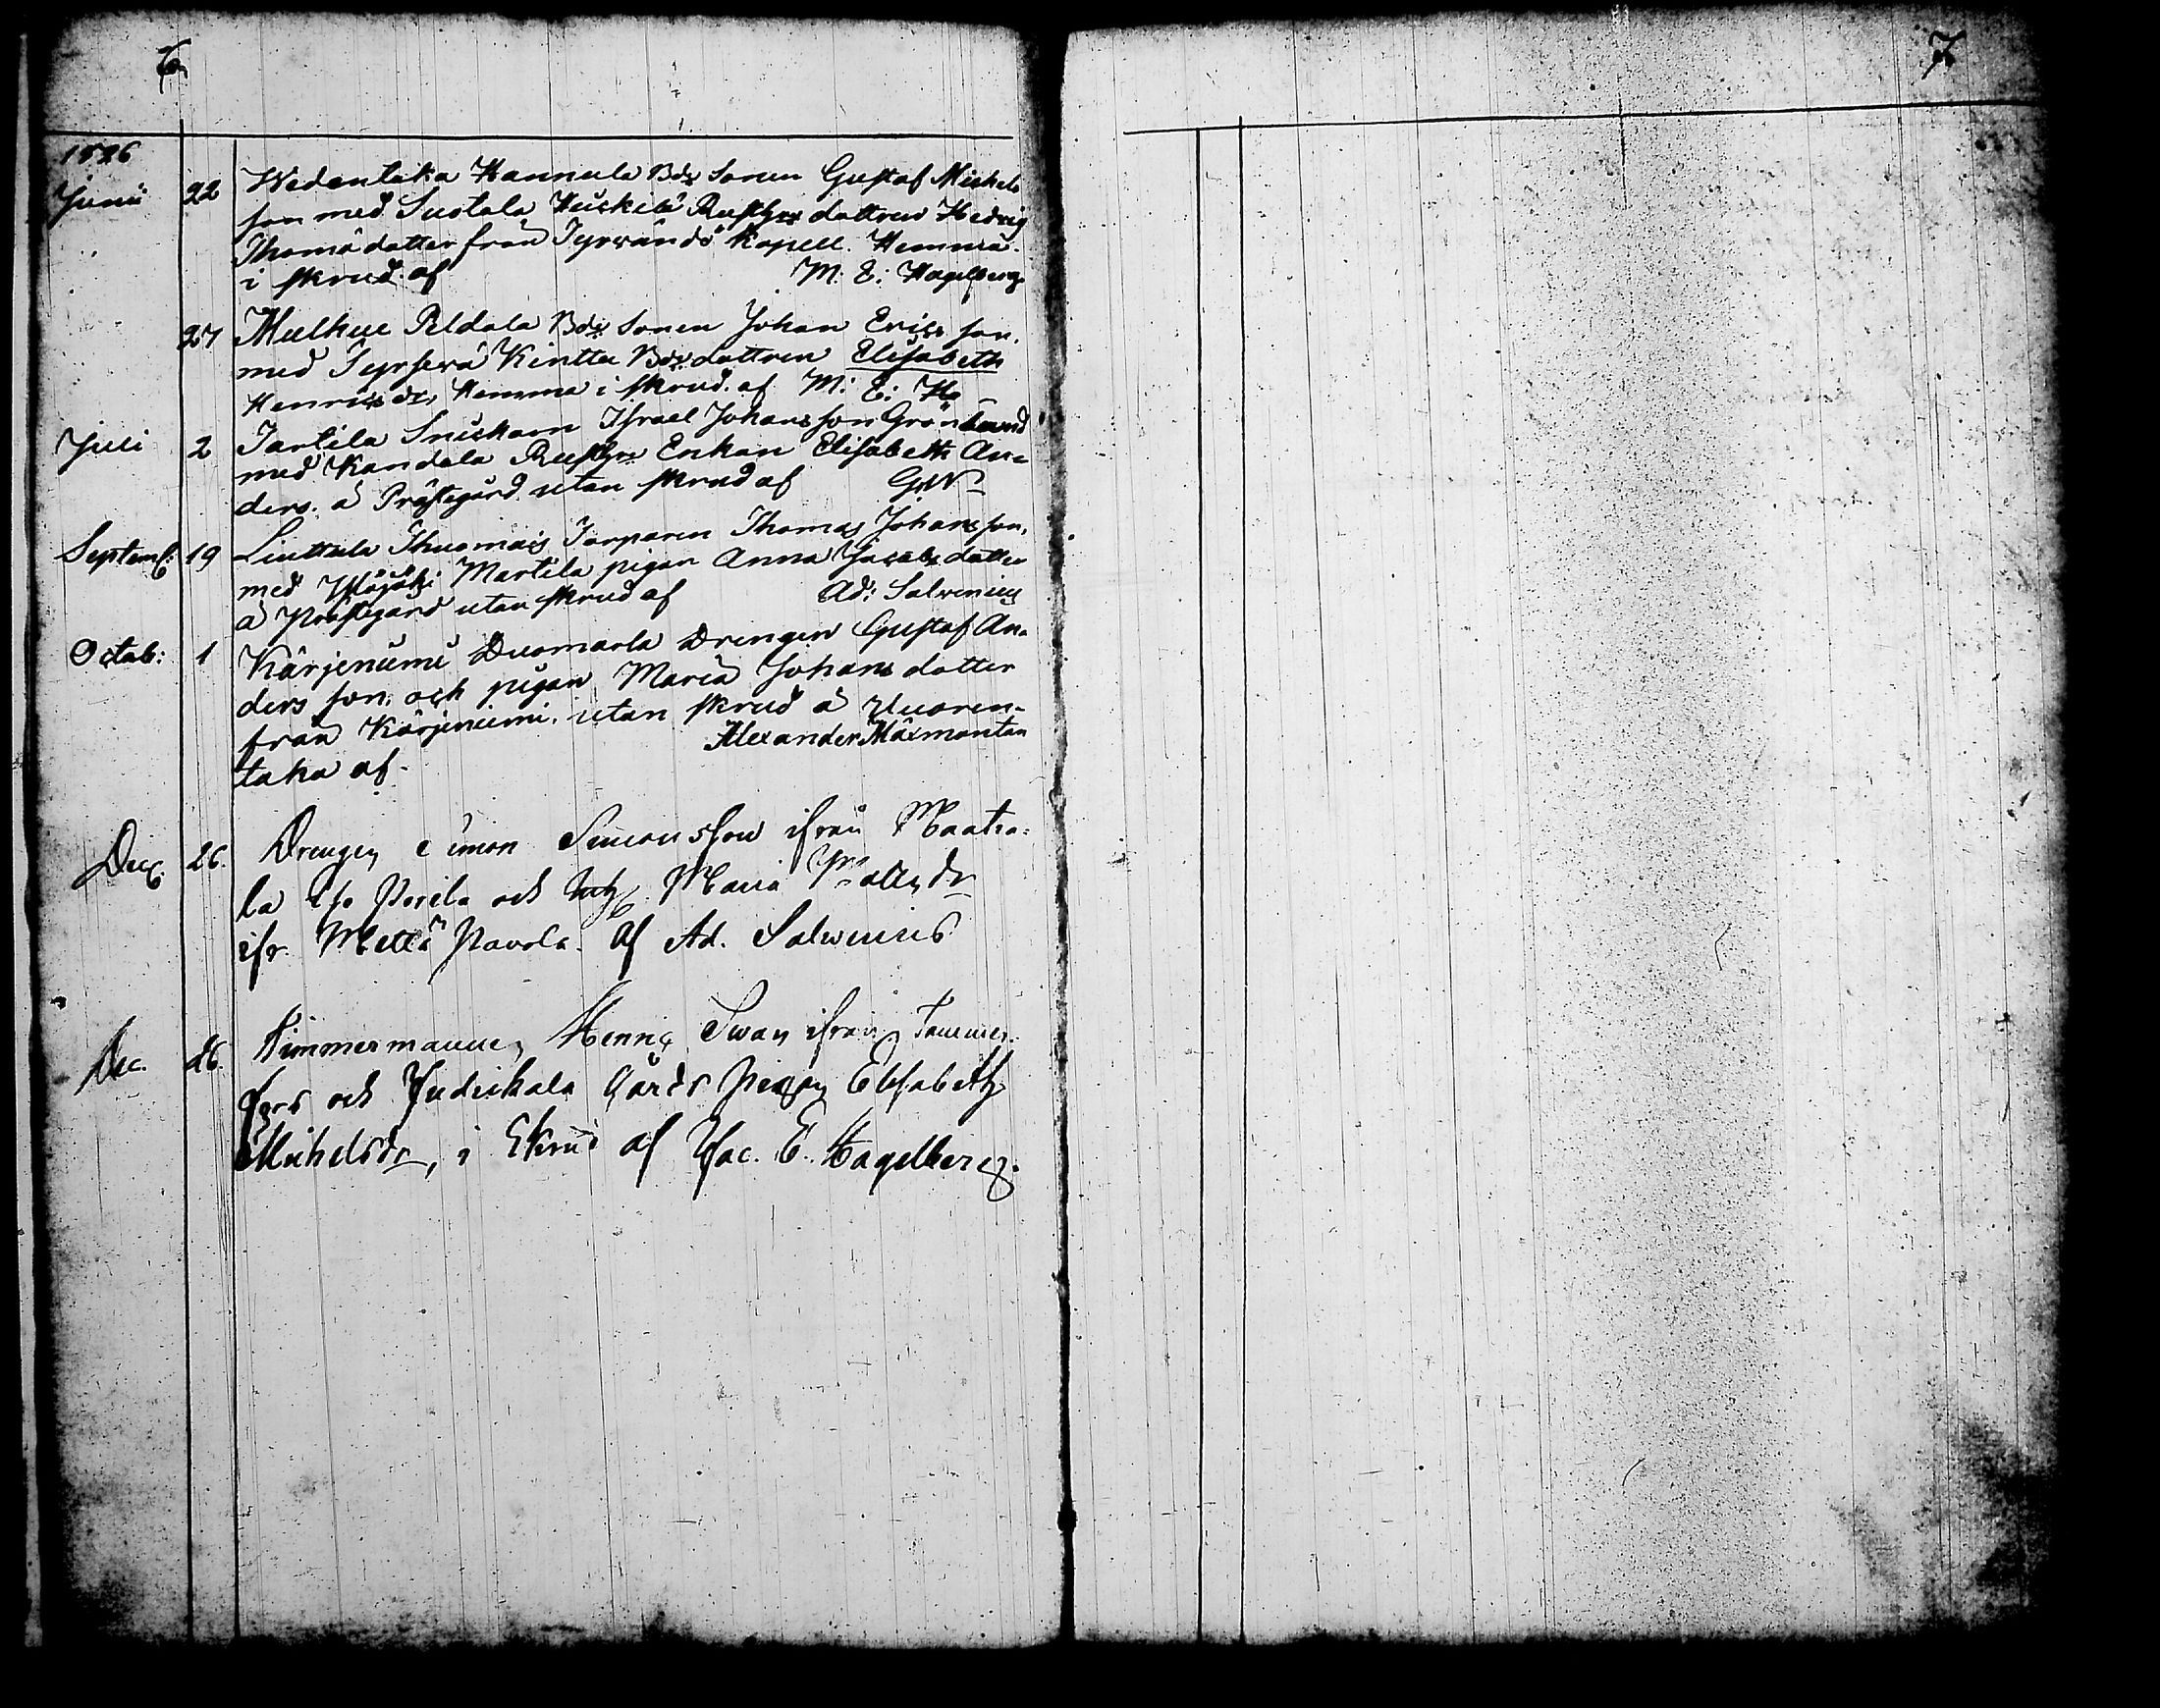 6
7
1826
Junii 22 Wedentaka Hannula Bds Sonen Gustaf Michels
son med Suotala Huskilä Rusth:s dottren Hedvig
Thomä dotter från Tyrvändö Kapell. Hemma
i skrud af M: E: Hagelberg
27 Mulkue Peldola Bds Sonen Johan Erics son.
med Tyrferä Kintta Bds dottren Elisabeth
Henrics dr, Hemma i skrud. af M: E: Hg
Juli 2 Tartila Snickarn Israel Johans son Grönlund
med Kandola Rusth:s Enkan Elisabeth An=
ders. å Prästegård utan skrud af
Septemb: 19 Liuttula Thuomais Torparen Thomas Johans son,
med Martila pigan Anna Jacobs dotter
å Prästegård utan skrud af Ad: Salvenius
Octob: 1 Kärjenumi Duomarla Drengen Gustaf An=
ders son, och pigan Maria Johans dotter
från Kärjeniemi, utan skrud å Vuoren=
taka af. Alexander Mäxmontan
Dec. 26. Drengen Simon Simonsson ifrån Maatia=
la och Maria dr
ifr. Mellä Pavola. af Ad. Salvenius
Dec. 26. Timmermannen Henric Swan ifrån Tammer=
fors och Judickala Gårds Pigan Elisabeth
Michelsdr, i Skrud af Jac. E. Hagelberg.